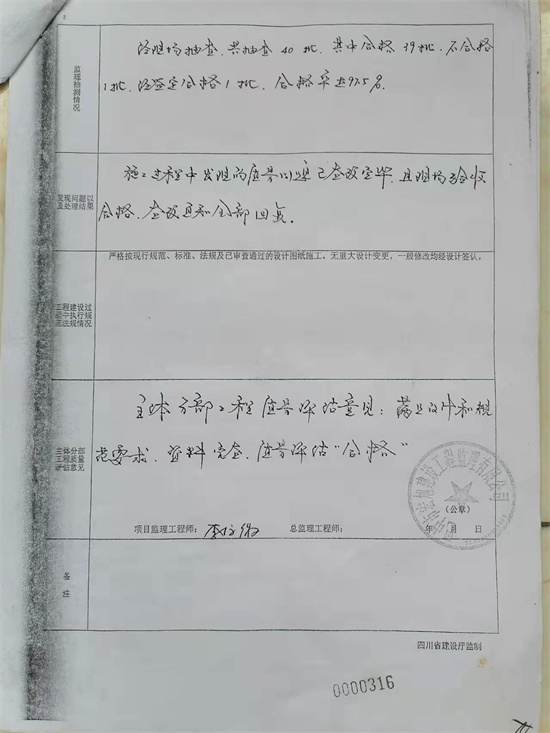 监理抽测情况
经现场抽查，共抽查40批，其中合格39批，不合格
1批，经鉴定合格1批，合格率达97.5%。
发现问题以及处理结果
施工过程中发现的质量问题已整改完毕，且现场验收
合格，整改通知全部回复。
工程建设过程中执行规范法规情况
严格按现行规范、标准、法规及已审查通过的设计图纸施工。无重大设计变更，一般修改均经设计签认。
主体分部工程质量评估意见
主体分部工程质量评估意见：满足设计和规
范要求，资料完全，质量评估“合格”
建设工程监理有限公司
（公章）
项目监理工程师： 总监理工程师： 年 月 日
备注
四川省建设厅监制
0000316